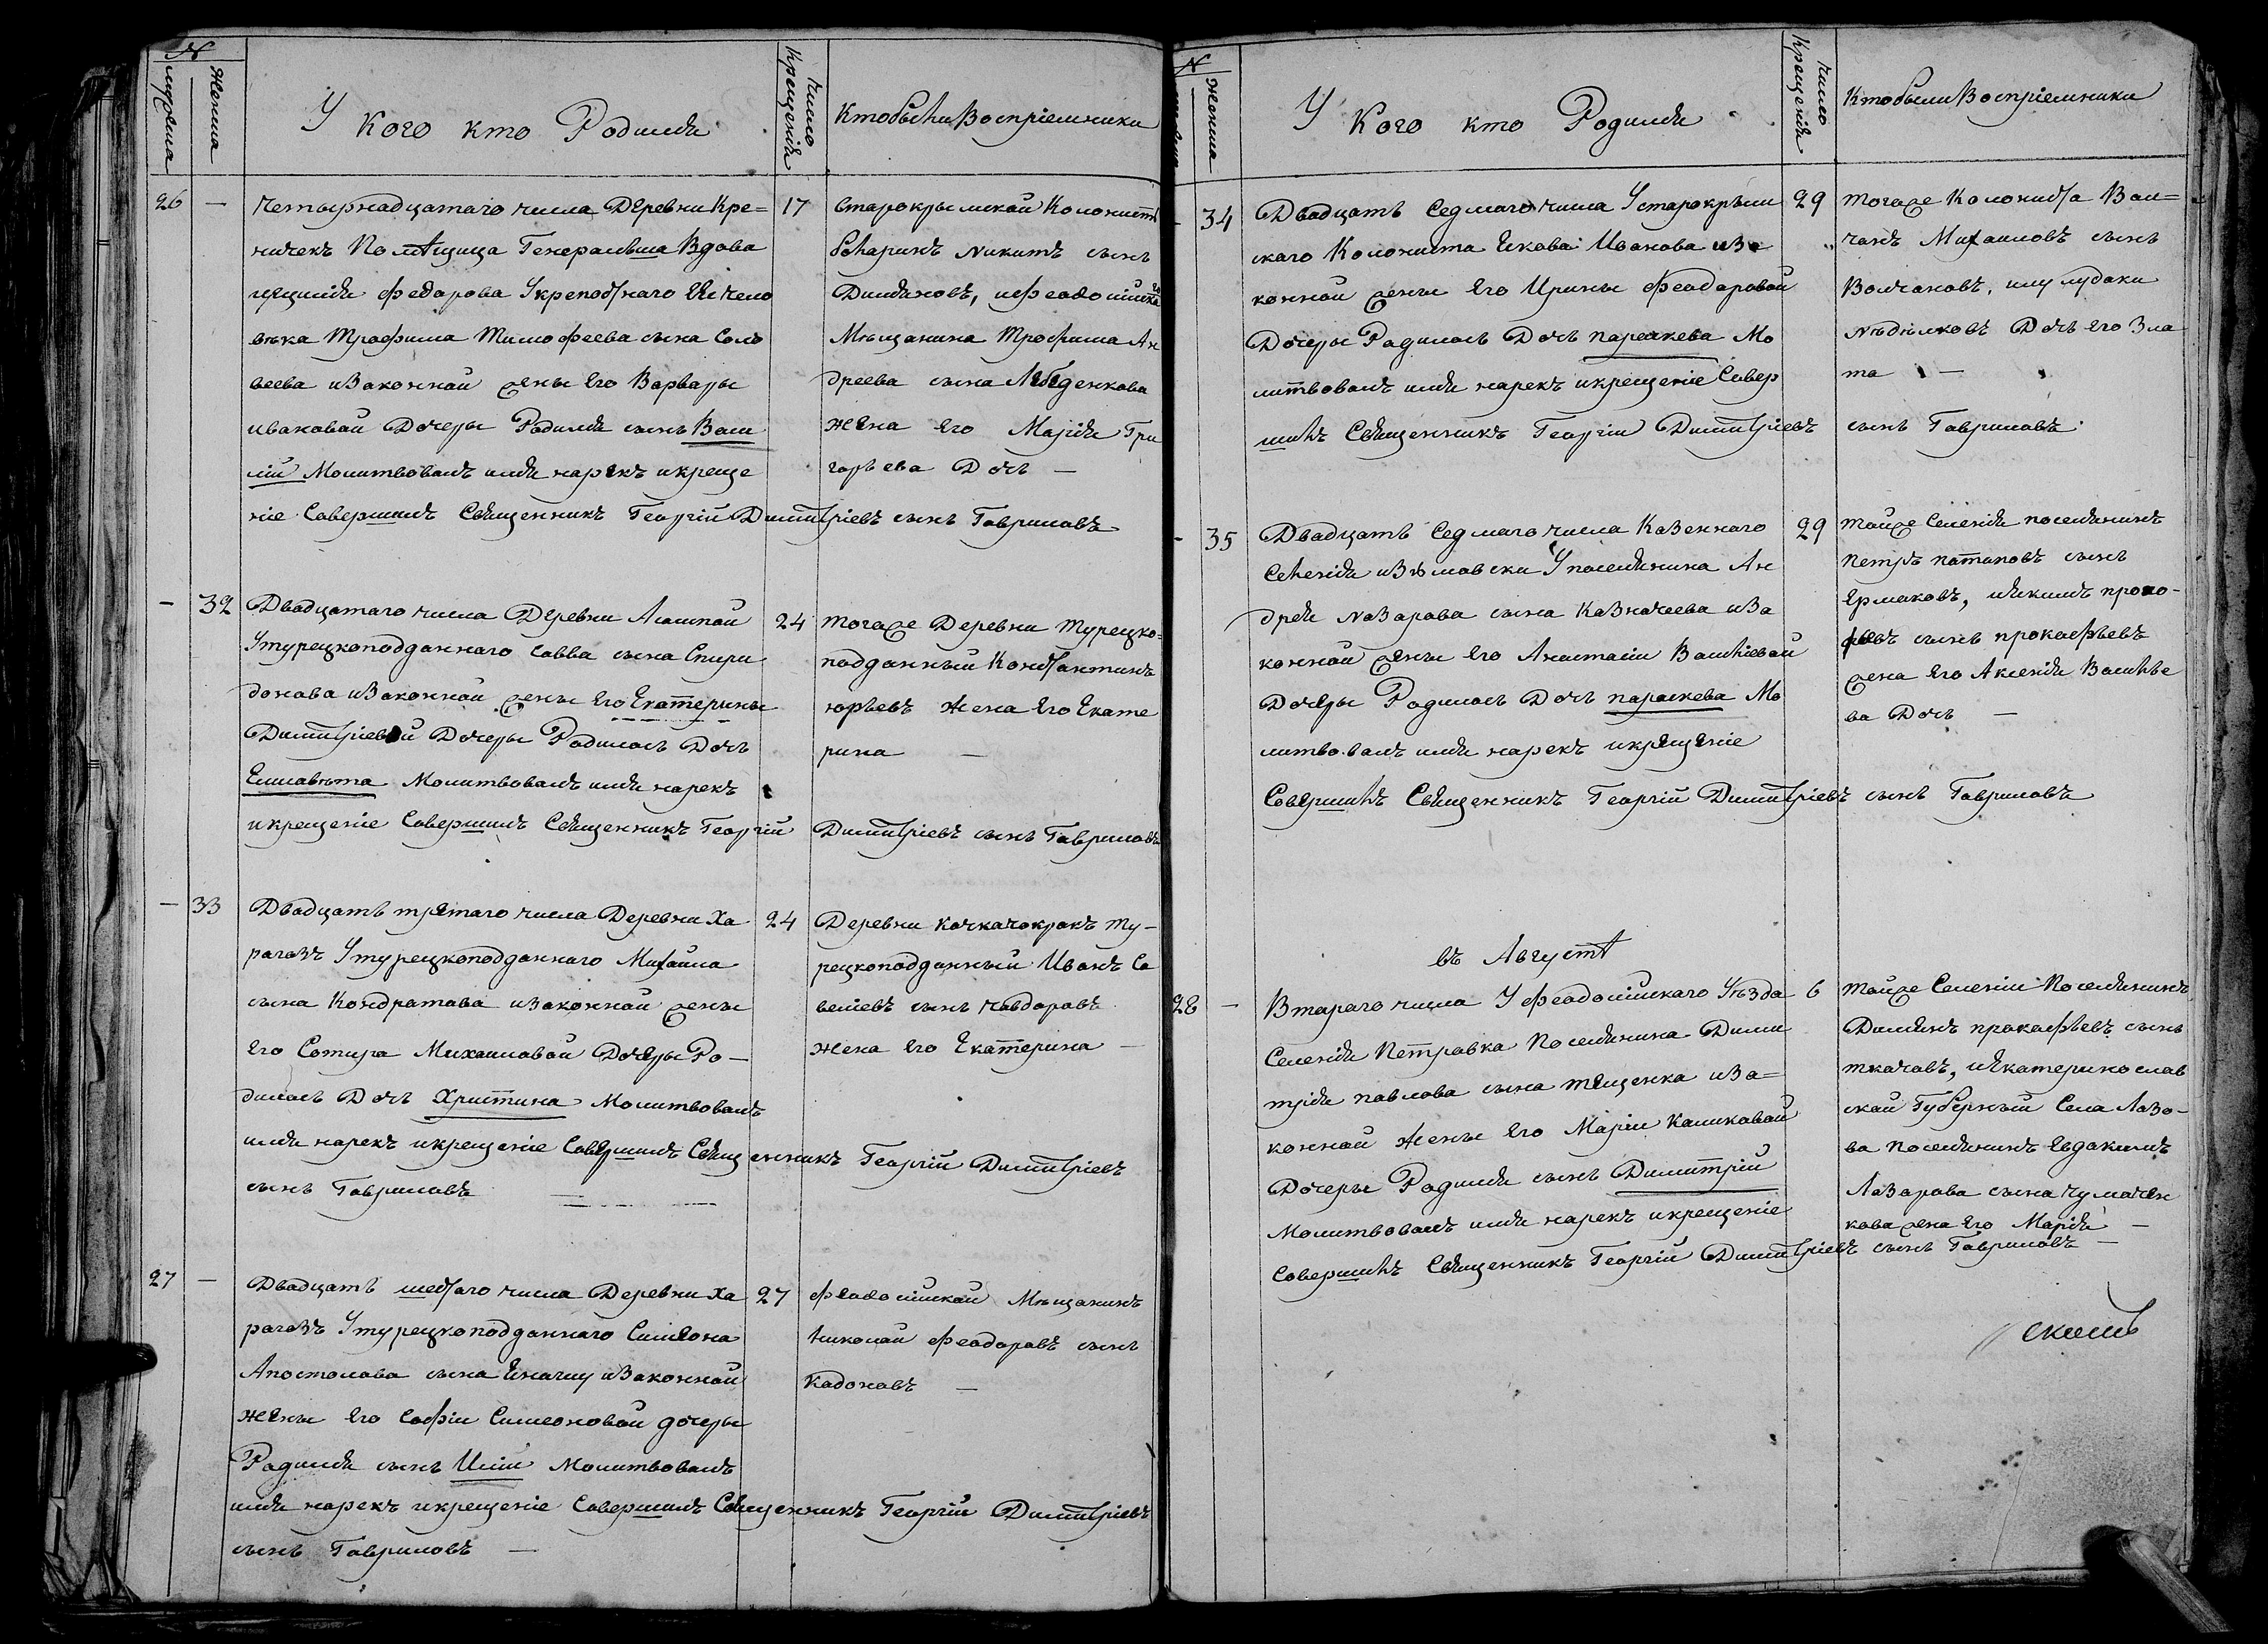 N
мужеска
Женска
У кого кто Родился
Число Крещенія
Кто были Воспріемники
26 —
Четырнадцатаго числа Деревни Кре=
ничекъ Помѣщица Генеральша Вдова
Федорова Укрепостнаго Ея чело
вѣка Трофима Тимофеева сына Соло
веева изаконной жены Его Варвары
ивановой Дочеры Родился сынъ Васи
лій Молитвовалъ имя нарекъ икреще
ніе Совершилъ Священникъ Георгій Димитріевъ сынъ Гавриловъ
17
старокрымской Колонистъ
болгаринъ Никитъ сынъ
Диляновъ, ифеодосійска
го
Мѣщанина Трофима Ан
дреева сына Лебеденкова
Жена Его Марія Гри
горьева Дочь —
— 32
Двадцатаго числа Деревни
Утурецкоподданнаго Савва сына Спири
донова изаконной жены Его Екатерины
Димитріевой Дочеры Родилась Дочь
Елисавѣта Молитвовалъ имя нарекъ
икрещеніе Совершилъ Священникъ Георгій Димитріевъ сынъ Гавриловъ
24
тогоже Деревни Турецко=
подданный Константинъ
юрьевъ Жена Его Екате
рина —
— 33
Двадцать третаго числа Деревни Ха
рагозъ Утурецкоподданнаго Михаила
сына Кондратова изаконной жены
Его Сотира Михаиловой Дочеры Ро—
дилась Дочь Христина Молитвовалъ
имя нарекъ икрещеніе Совершилъ Священникъ Георгій Димитріевъ
сынъ Гавриловъ
24
Деревни Кочкачокракъ Ту—
рецкоподданный Иванъ Са
веліевъ сынъ Чавдаровъ
Жена Его Екатерина —
27 —
Двадцать шестаго числа Деревни Ха
рагозъ Утурецкоподданнаго Симеона
Апостолова сына Еначиу изаконной
Жены Его Софіи Симеоновой дочеры
Родился сынъ Илій Молитвовалъ
имя нарекъ икрещеніе Совершилъ Священникъ Георгій Димитріевъ
сынъ Гавриловъ —
27
феодосійской Мѣщанинъ
Николай Феодоровъ сынъ
Кадоновъ —
N
Женска
У Кого кто Родился
Число Крещенія
Кто были Воспріемники
- 34
Двадцать Седмаго числа Устарокрым
скаго Колониста Екова Иванова иза
конной жены Его Ирины Феодоровой
Дочеры Родилась Дочь параскева Мо
литвовалъ имя нарекъ икрещеніе Совер
шилъ Священникъ Георгіи Димитріевъ сынъ Гавриловъ
29
тогоже Колониста Вол=
чанъ Михаиловъ сынъ
Волчановъ,
Дочь Его Зла
та —
- 35
Двадцать Седмаго числа Казеннаго
Селенія изюмовски Упоселянина Ан
дрея Назарова сына Казначеева иза
конной жены Его Анастасіи Василіевой
Дочеры Родилась Дочь параскева Мо
литвовалъ имя нарекъ икрещеніе
Совершилъ Священникъ Георгій Димитріевъ сынъ Гавриловъ
29
тойже Селенія поселянинъ
Петръ патаповъ сынъ
Ермаковъ, иЯкимъ проко-
фьевъ сынъ прокофьевъ
жена Его Аксенія Василье
ва Дочь —
въ Августѣ
28 —
Втораго числа У феодосійскаго Уѣзда
Селенія Петровка Поселянина Дими
трія павлова сына тищенка иза=
конной Жены Его Маріи Каликовой
Дочеры Родился сынъ Димитрій
Молитвовалъ имя нарекъ икрещеніе
Совершилъ Священникъ Георгій Димитріевъ сынъ Гавриловъ —
6
тойже Селеніи Поселянинъ
Дамянъ прокофьевъ сынъ
ткачовъ, иЕкатеринослав
ской Губерный Села Лазо-
ва поселянинъ Евдокимъ
Лазарова сына Чумачен
кова жена Его Марія —